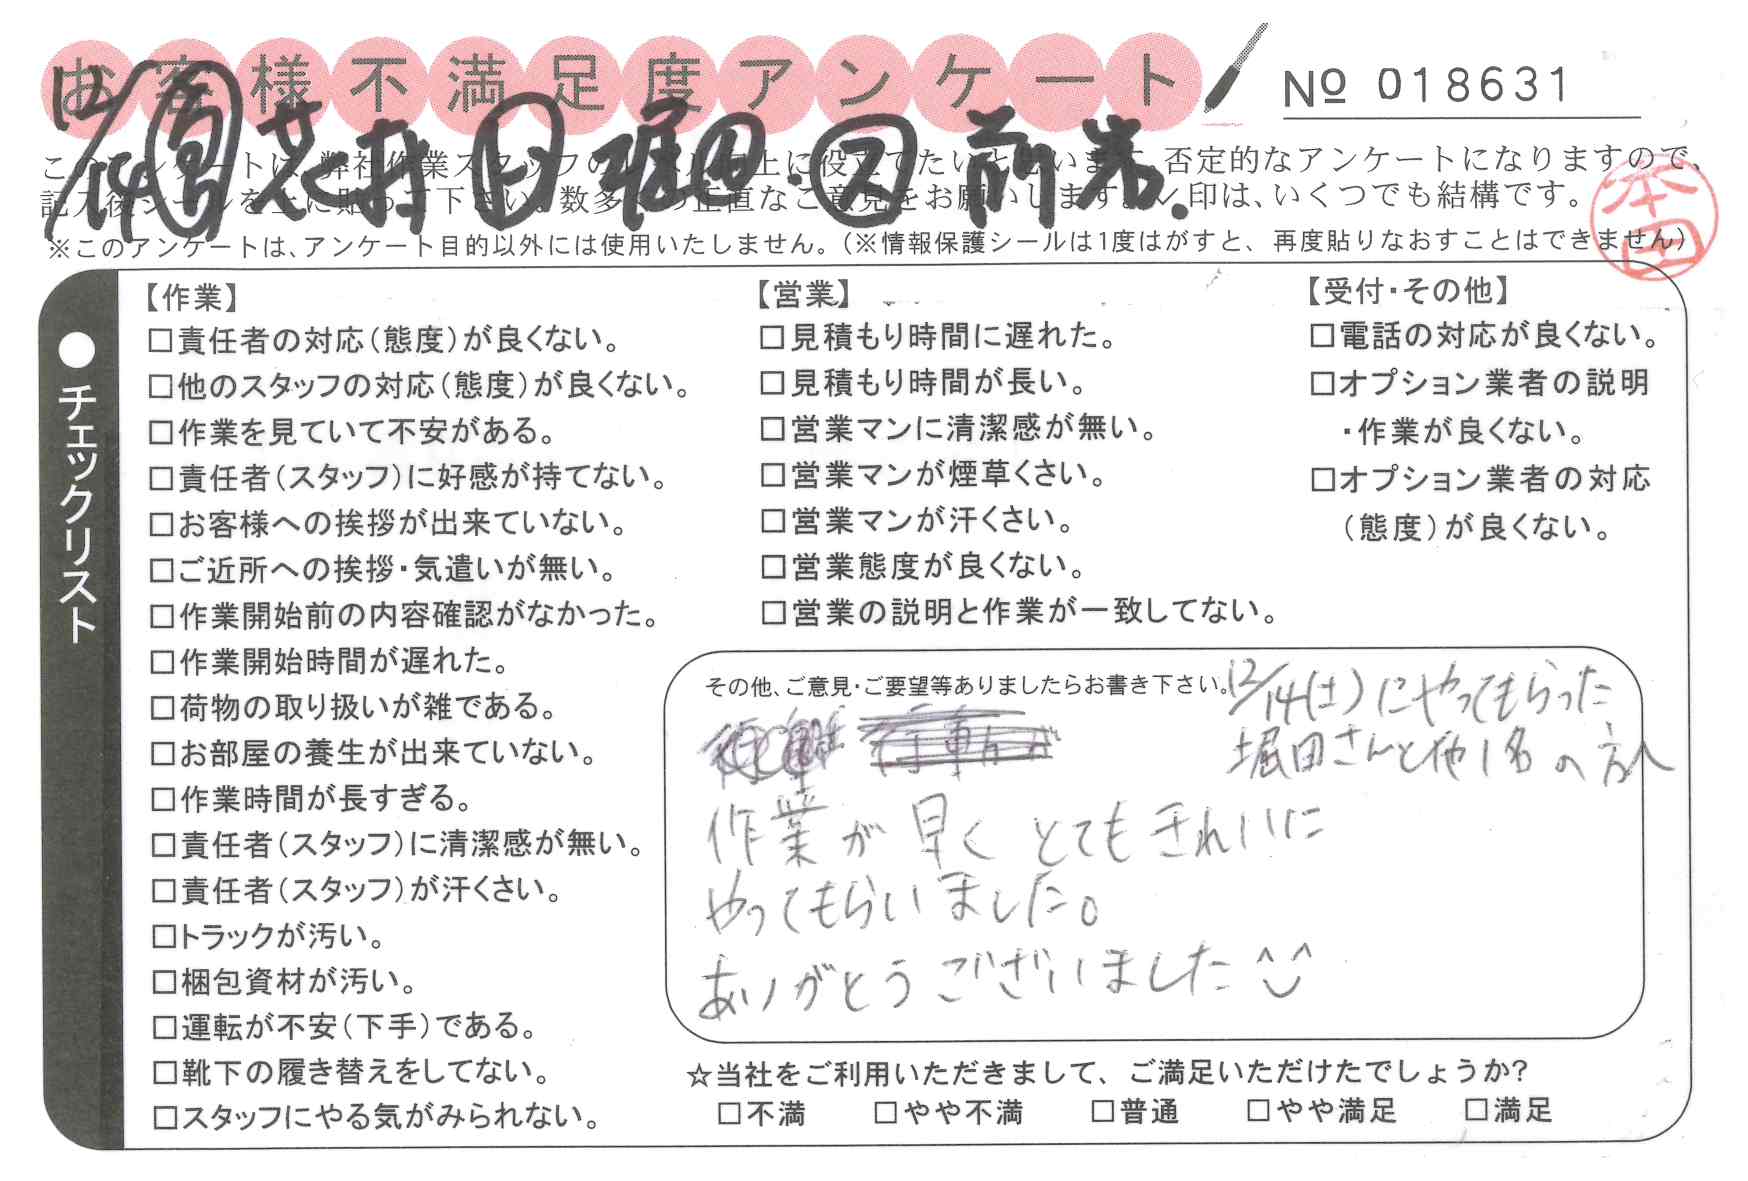 お客様不満足度アンケート
№ 018631
12/14 営 芝村 日 堀田・回 前岩.
このアンケートは、弊社作業スタッフのレベル向上に役立てたいと思います。否定的なアンケートになりますので、
記入後シールを上に貼って下さい。数多くの正直なご意見をお願いします。✓印は、いくつでも結構です。
本田
※このアンケートは、アンケート目的以外には使用いたしません。(※情報保護シールは1度はがすと、再度貼りなおすことはできません)
●チェックリスト
【作業】
□責任者の対応(態度)が良くない。
□他のスタッフの対応(態度)が良くない。
□作業を見ていて不安がある。
□責任者(スタッフ)に好感が持てない。
□お客様への挨拶が出来ていない。
□ご近所への挨拶・気遣いが無い。
□作業開始前の内容確認がなかった。
□作業開始時間が遅れた。
□荷物の取り扱いが雑である。
□お部屋の養生が出来ていない。
□作業時間が長すぎる。
□責任者(スタッフ)に清潔感が無い。
□責任者(スタッフ)が汗くさい。
□トラックが汚い。
□梱包資材が汚い。
□運転が不安(下手)である。
□靴下の履き替えをしてない。
□スタッフにやる気がみられない。
【営業】
□見積もり時間に遅れた。
□見積もり時間が長い。
□営業マンに清潔感が無い。
□営業マンが煙草くさい。
□営業マンが汗くさい。
□営業態度が良くない。
□営業の説明と作業が一致してない。
【受付・その他】
□電話の対応が良くない。
□オプション業者の説明
・作業が良くない。
□オプション業者の対応
(態度)が良くない。
その他、ご意見・ご要望等ありましたらお書き下さい。
12/14(土)にやってもらった
堀田さんと他1名の方へ
作業が早くとてもきれいに
やってもらいました。
ありがとうございました^^
☆当社をご利用いただきまして、ご満足いただけたでしょうか?
□不満 □やや不満 □普通 □やや満足 □満足